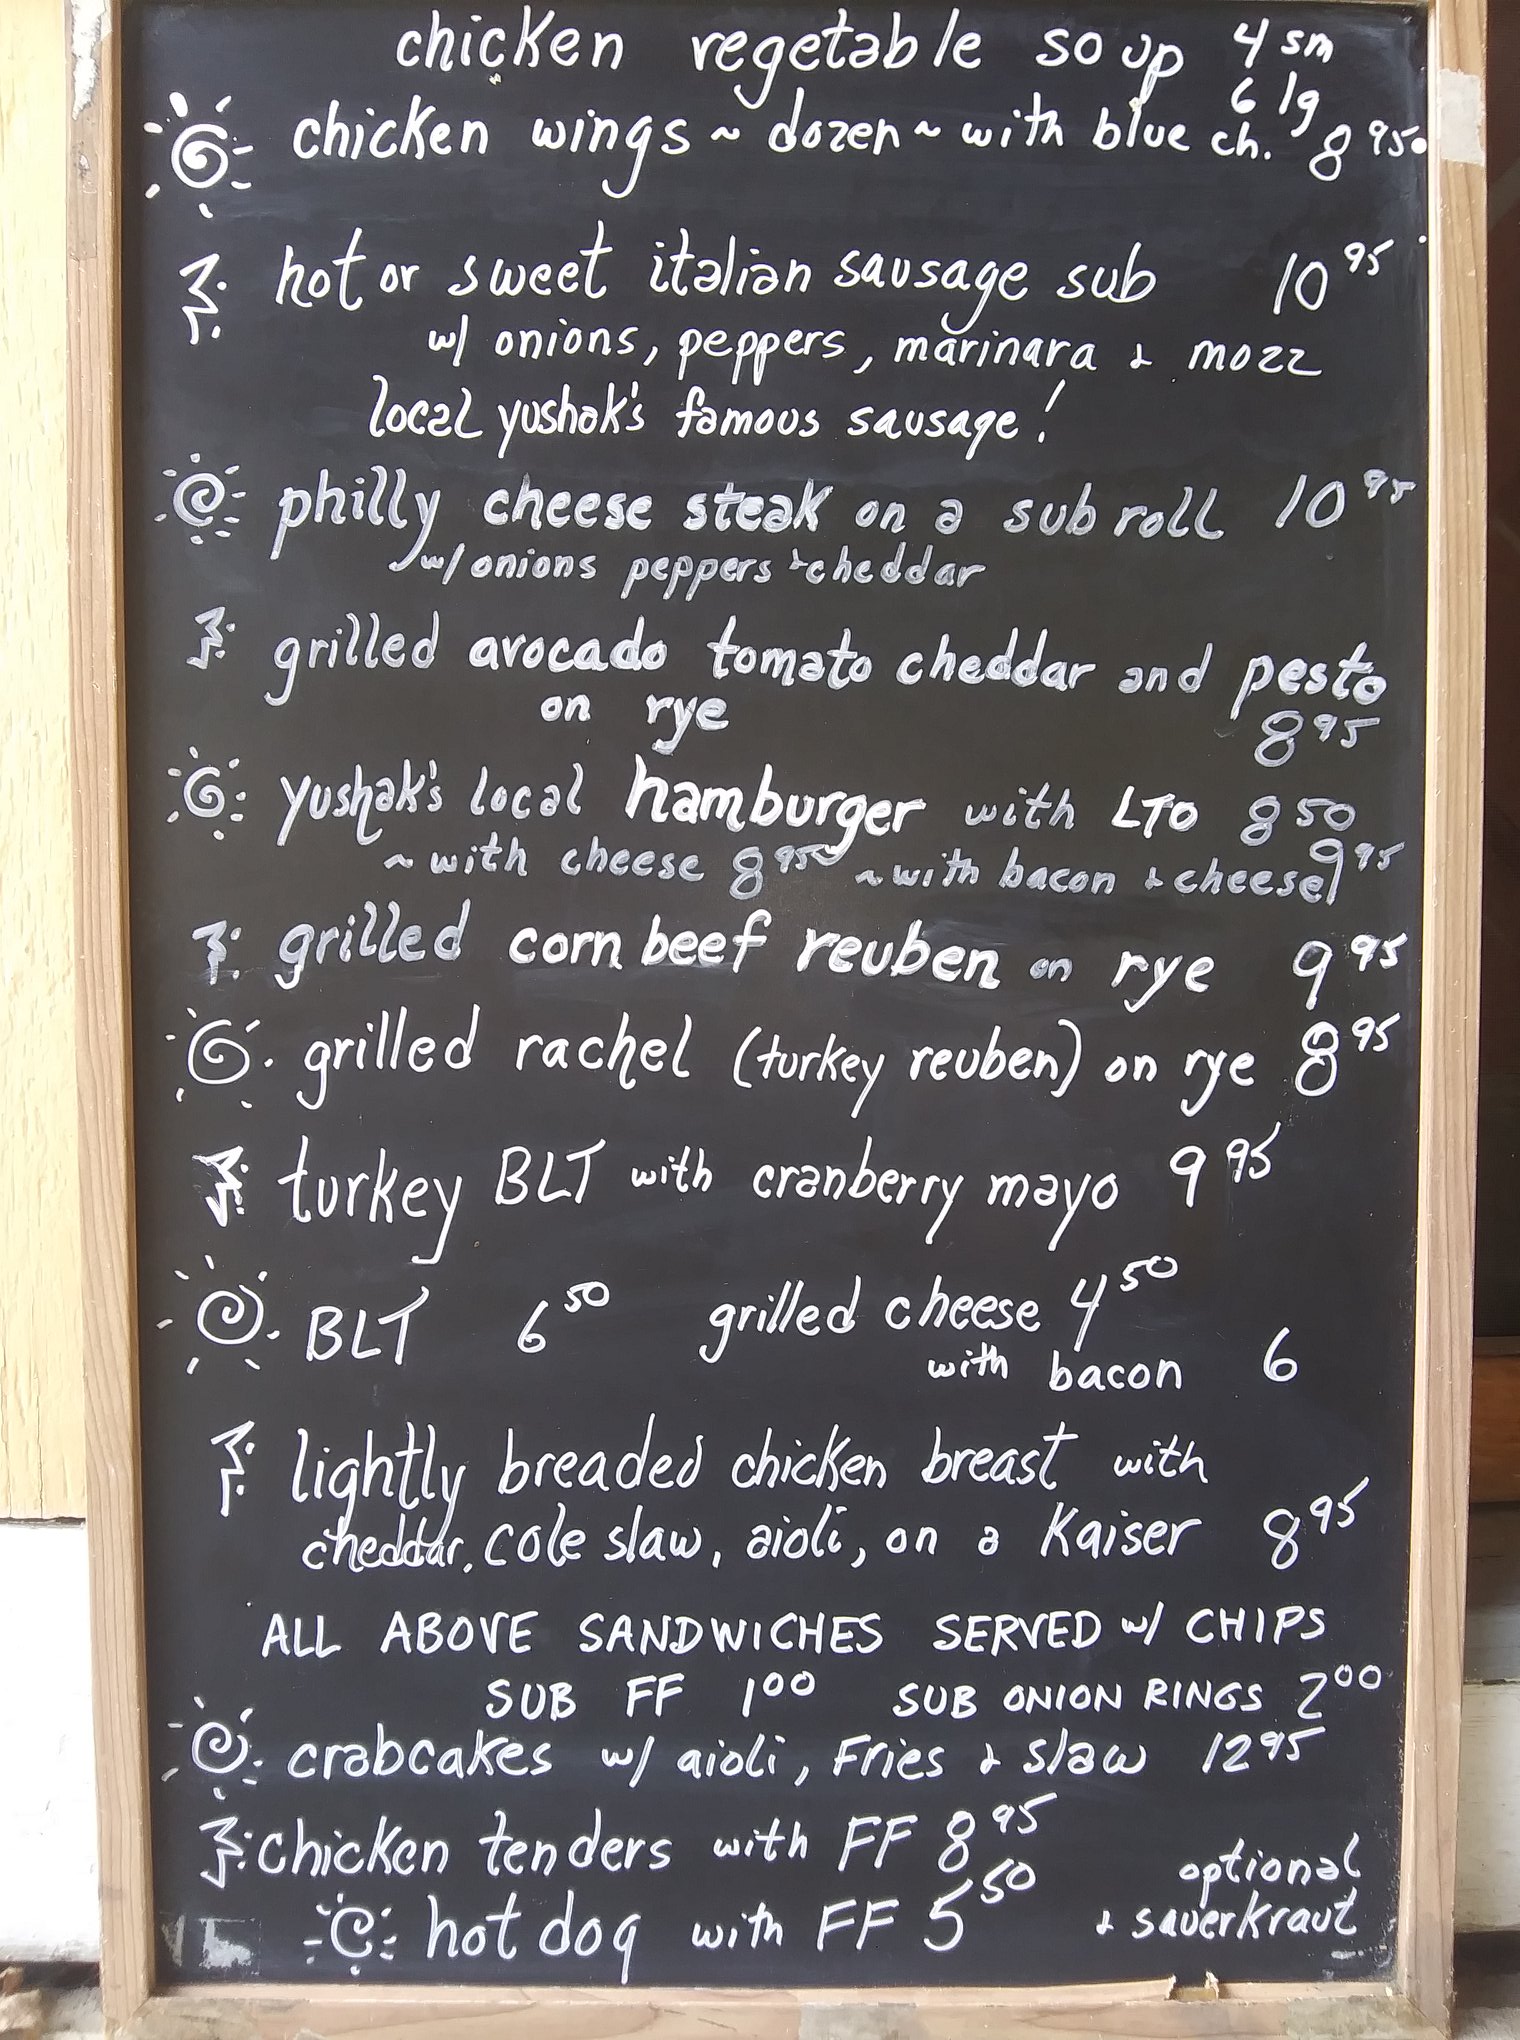 chicken vegetable soup 4 sm
6 lg
chicken wings ~ dozen ~ with blue ch. 8 95
hot or sweet italian sausage sub 10 95
w/ onions, peppers, marinara & mozz
local yushak's famous sausage!
philly cheese steak on a sub roll 10 95
w/ onions peppers & cheddar
grilled avocado tomato cheddar and pesto
on rye 8 95
yushak's local hamburger with LTO 8 50
~ with cheese 8 95 ~ with bacon & cheese 9 95
grilled corn beef reuben on rye 9 95
grilled rachel (turkey reuben) on rye 8 95
turkey BLT with cranberry mayo 9 95
BLT 6 50 grilled cheese 4 50
with bacon 6
lightly breaded chicken breast with
cheddar, cole slaw, aioli, on a Kaiser 8 95
ALL ABOVE SANDWICHES SERVED w/ CHIPS
SUB FF 1 00 SUB ONION RINGS 2 00
crabcakes w/ aioli, Fries & slaw 12 95
chicken tenders with FF 8 95
hot dog with FF 5 50
optional
& sauerkraut